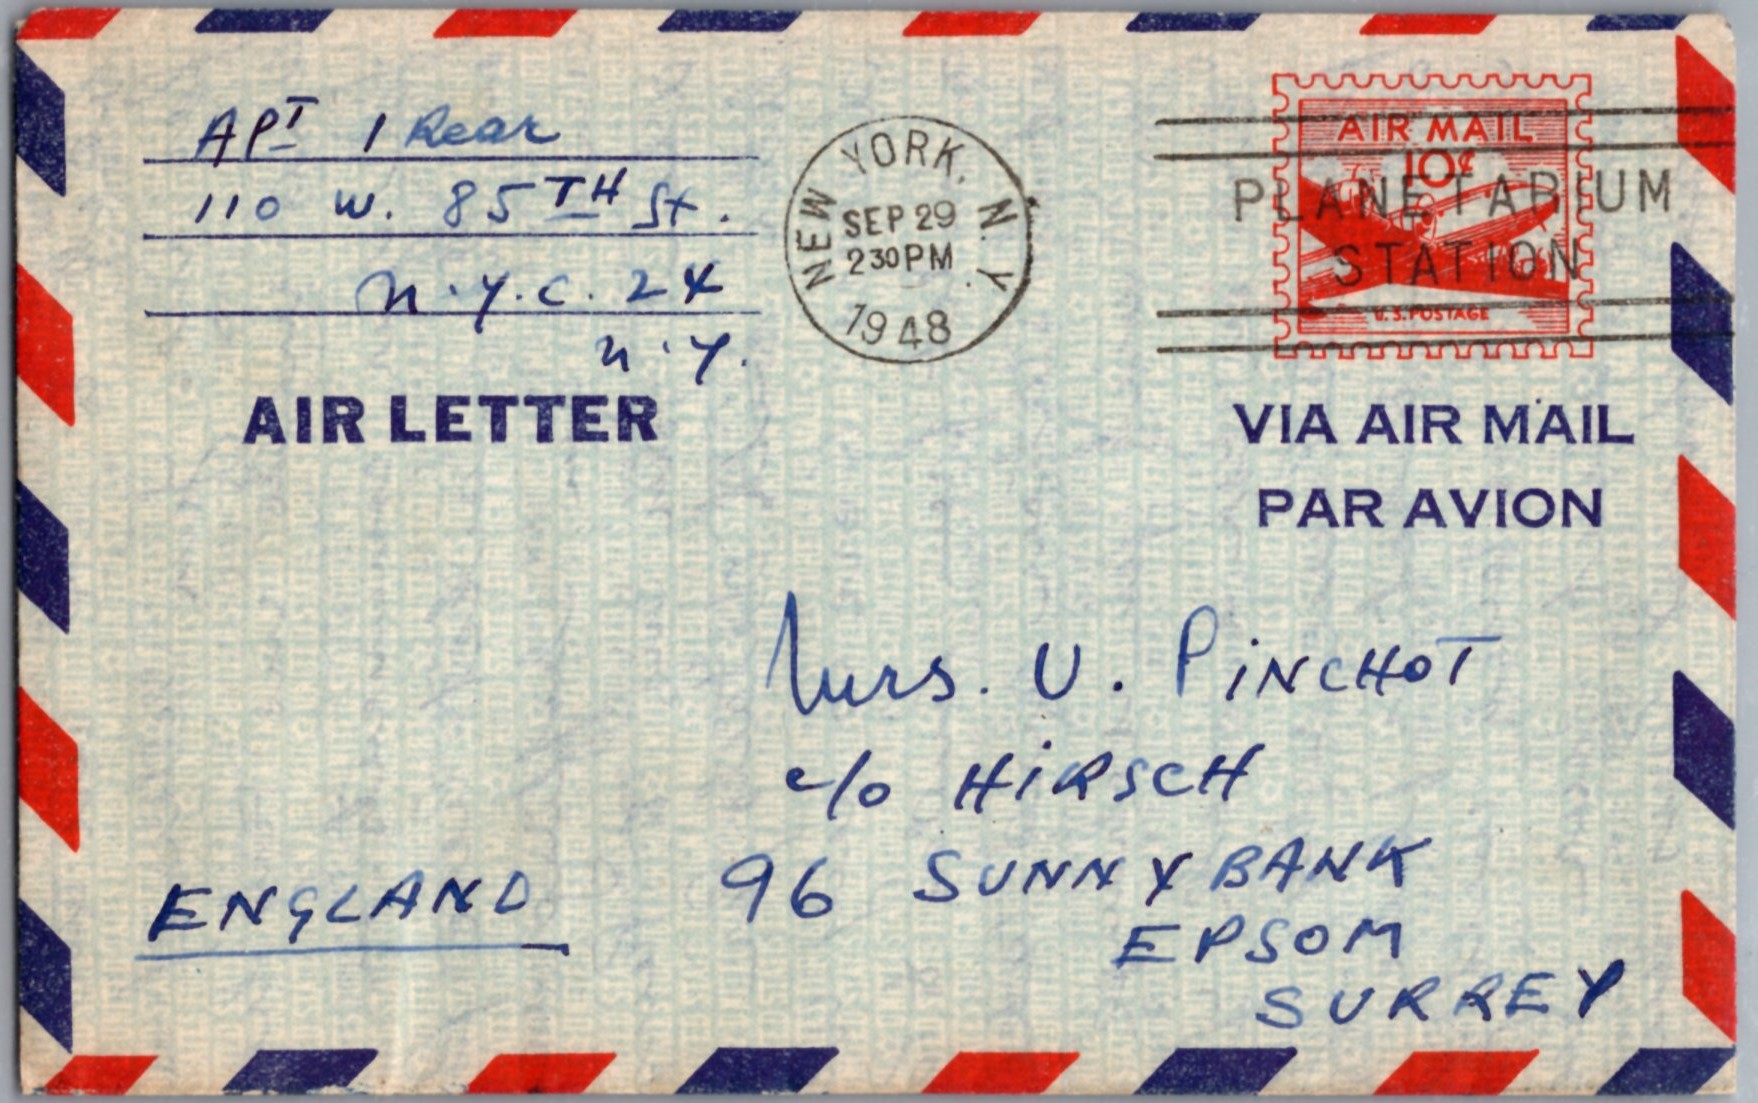 APT 1 Rear
110 W. 85TH St.
N.Y.C. 24
N.Y.
AIR LETTER
NEW YORK, N.Y.
SEP 29
230PM
1948
AIR MAIL
10¢
PLANETARIUM
STATION
U.S. POSTAGE
VIA AIR MAIL
PAR AVION
Mrs. U. PiNCHOT
c/o HiRSCH
96 SUNNYBANK
EPSOM
SURREY
ENGLAND